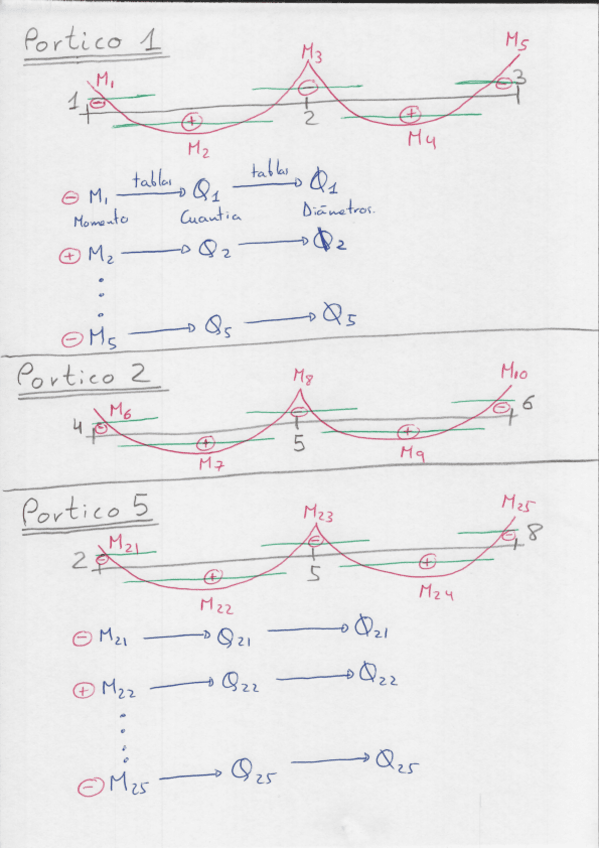 Portico 1
M1 M3 M5
1 - + - + - 3
2
M2 M4
- M1 tablas Q1 tablas Ø1
Momento Cuantia Diámetros.
+ M2 Q2 Ø2
- M5 Q5 Ø5
Portico 2
M8 M10
4 - M6 + - + - 6
5
M7 M9
Portico 5
M23 M25
2 - M21 + - + - 8
5
M22 M24
- M21 Q21 Ø21
+ M22 Q22 Ø22
- M25 Q25 Ø25